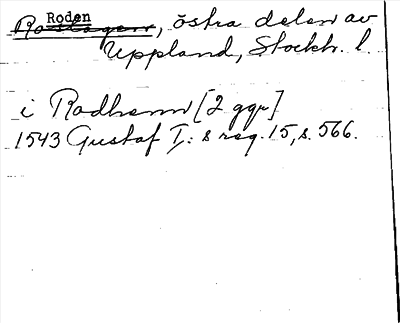 Roden
Roslagen, östra delen av
Uppland, Stockh. l.
i Rodhenn [2 ggr]
1543 Gustaf I:s reg. 15, s. 566.